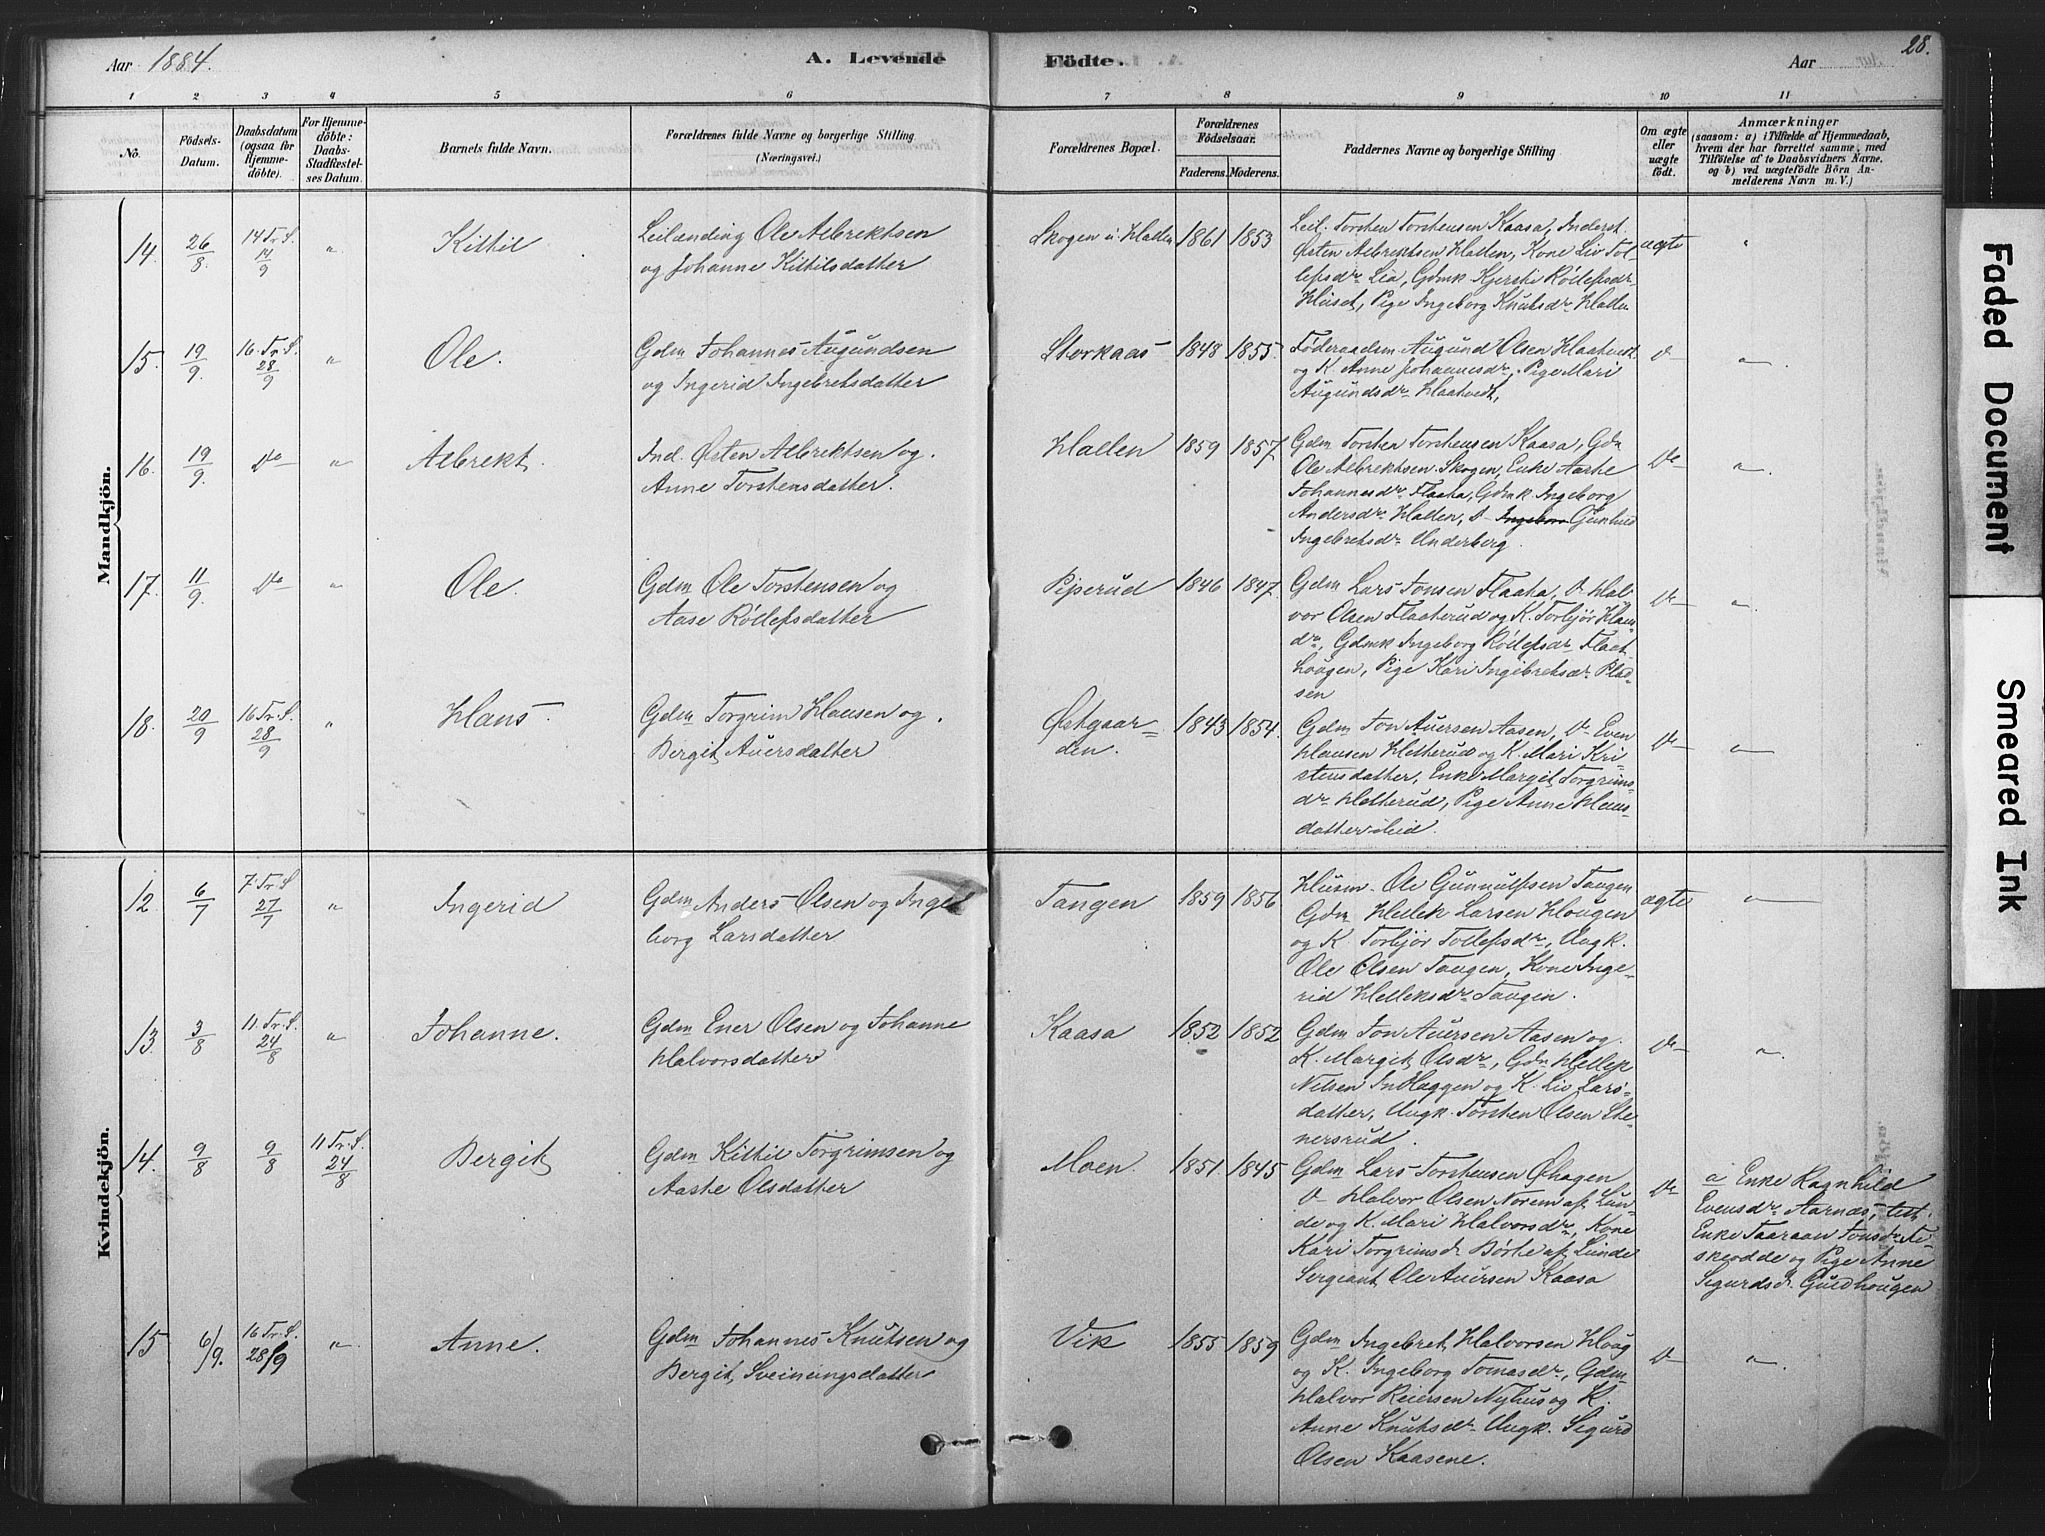 Aar 1884.
A. Levende Födte.
Aar
28.
1 2 3 4 5 6 7 8 9 10 11
No.
Födsels-
Datum.
Daabsdatum
(ogsaa for
Hjemme-
döbte).
For Hjemme-
döbte:
Daabs-
Stadfæstel-
ses Datum.
Barnets fulde Navn.
Forældrenes fulde Navne og borgerlige Stilling
(Næringsvei.)
Forældrenes Bopæl.
Forældrenes
Födselsaar.
Faderens. Moderens.
Faddernes Navne og borgerlige Stilling
Om ægte
eller
uægte
födt.
Anmærkninger
(saasom: a) i Tilfælde af Hjemmedaab,
hvem der har forrettet samme, med
Tilföielse af to Daabsvidners Navne,
og b) ved uægtefödte Börn An-
melderens Navn m. V.)
Mandkjön.
14. 26/8. 14 Tr. S. 14/9 " Kittil
Leilænding Ole Albrektsen
og Johanne Kittilsdatter
Skogen u. Hallen 1861 1853
Leil. Torsten Torstensen Kaasa, Inderst
Østen Albrektsen Hallen, Kone Liv Tol-
lefsdr Lia, Gdmk Kjersti Rollefsdr
Huset, Pige Ingeborg Knutsdr Hallen
ægte "
15. 19/9. 16. Tr. S. 28/9 " Ole.
Gdm Johannes Augundsen
og Ingerid Ingebretsdatter
Storkaas 1848 1855.
Föderaadsm Augund Olsen Haatvedt
og K. Anne Johannesdr, Pige Mari
Augundsdr Haatvedt,
d- "
16. 19/9. Do " Albrekt.
Ind. Østen Albrektsen og
Anne Torstensdatter.
Hallen 1859 1857.
Gdm Torsten Torstensen Kaasa, Gdm
Ole Albrektsen Skogen, Enke Aaste
Johannesdr Flaata, Gdmk Ingeborg
Andersdr Hallen, d- Gunhild
Ingebretsdr Underberg.
Do "
17. 11/9. Do " Ole.
Gdm Ole Torstensen og
Aase Rollefsdatter
Piperud 1846 1847.
Gdm Lars Jonsen Flaata, d- Hal-
vor Olsen Flaaterud og K. Torbjör Hans-
dr, Gdmk Ingeborg Rollefsdr Flaat-
hougen, Pige Kari Ingebretsdr Plad-
sen
Do "
18. 20/9 16 Tr. S. 28/9 " Hans.
Gdm Torgrim Hansen og
Bergit Auersdatter
Østgaar-
den. 1843 1854.
Gdm Jon Auersen Aasen, d- Even
Hansen Hetterud og K. Mari Kri-
stensdatter, Enke Margit Torgrims-
dr Hetterud, Pige Anne Hans-
datter ibid.
Do "
Kvindekjön.
12. 6/7 7. Tr. S. 27/7 " Ingerid
Gdm Anders Olsen og Inge-
borg Larsdatter
Tangen 1859 1856
Husm. Ole Gunnulfsen Tangen
Gdm Hellek Larsen Hougen
og K. Torbjör Tollefsdr, Ungk.
Ole Olsen Tangen, Kone Inge-
rid Helleksdr Tangen.
ægte "
13. 3/8 11. Tr. S. 24/8 " Johanne.
Gdm Ener Olsen og Johanne
Halvorsdatter
Kaasa 1852 1852
Gdm Jon Auersen Aasen og
K. Margit Olsdr, Gdm Hellek
Nilsen Indlaggen og K. Liv Lars-
datter, Ungk. Torsten Olsen Ste-
nersrud.
Do "
14. 9/8 9/8 11 Tr. S. 24/8 Bergit
Gdm Kittil Torgrimsen og
Aaste Olsdatter
Moen. 1851 1845
Gdm Lars Torstensen Øhagen
d- Halvor Olsen Norem af Lun-
de og K. Mari Halvorsdr, Kone
Kari Torgrimsd. Börte af Lunde
Sergeant Ole Auersen Kaasa
Do
a Enke Ragnhild
Evensdr Aarnæs, test.
Enke Taaraan Jonsdr
og Pige Anne
Sigurdsd. Guldhougen
15 6/9. 16 Tr. S. 28/9 " Anne.
Gdm Johannes Knutsen og
Bergit Sveinungsdatter
Vik 1855 1859
Gdm Ingebret Halvorsen Houg
og K. Ingeborg Tomasdr, Gdm
Halvor Reiersen Nyhus og K.
Anne Knutsdr Ungk. Sigurd
Olsen Kaasene.
d- "
Faded Document
Smeared Ink